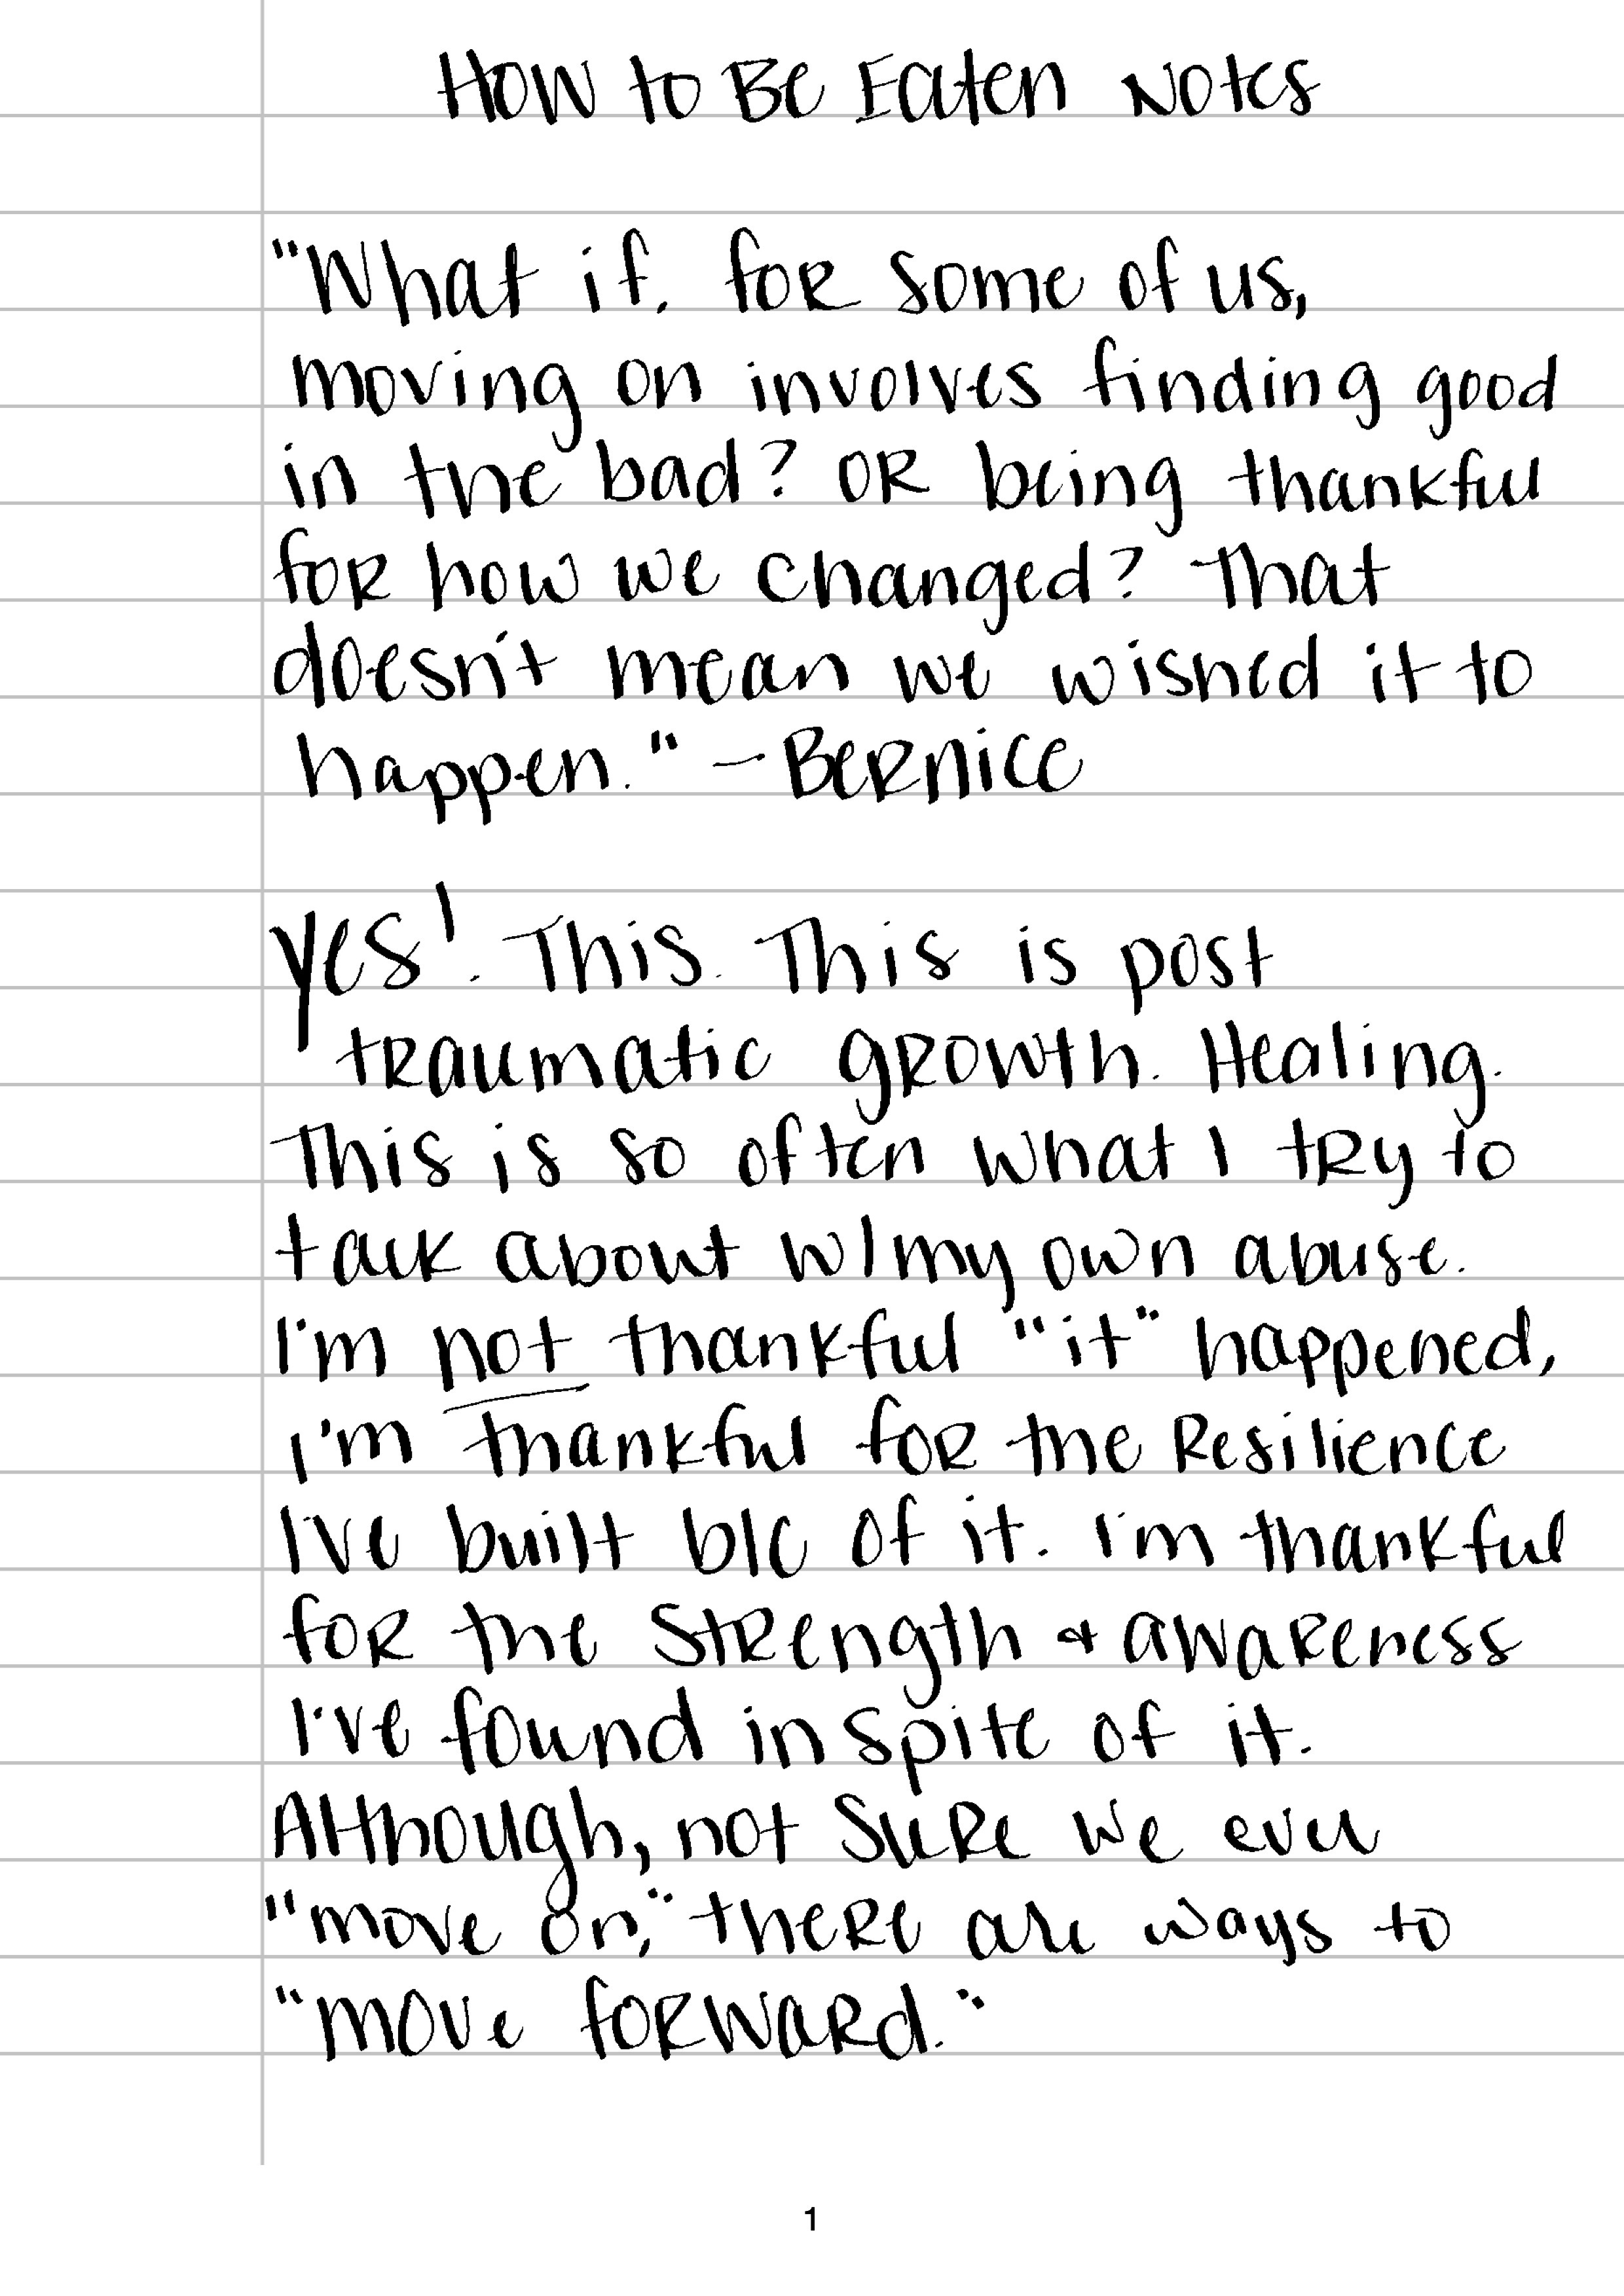 How to Be Eaten Notes
"What if, for some of us,
moving on involves finding good
in the bad? Or being thankful
for how we changed? That
doesn't mean we wished it to
happen." - Bernice
Yes! This. This is post
traumatic growth. Healing.
This is so often what I try to
talk about w/my own abuse.
I'm not thankful "it" happened,
I'm thankful for the resilience
I've built b/c of it. I'm thankful
for the strength & awareness
I've found in spite of it.
Although, not sure we ever
"move on," there are ways to
"move forward."
1